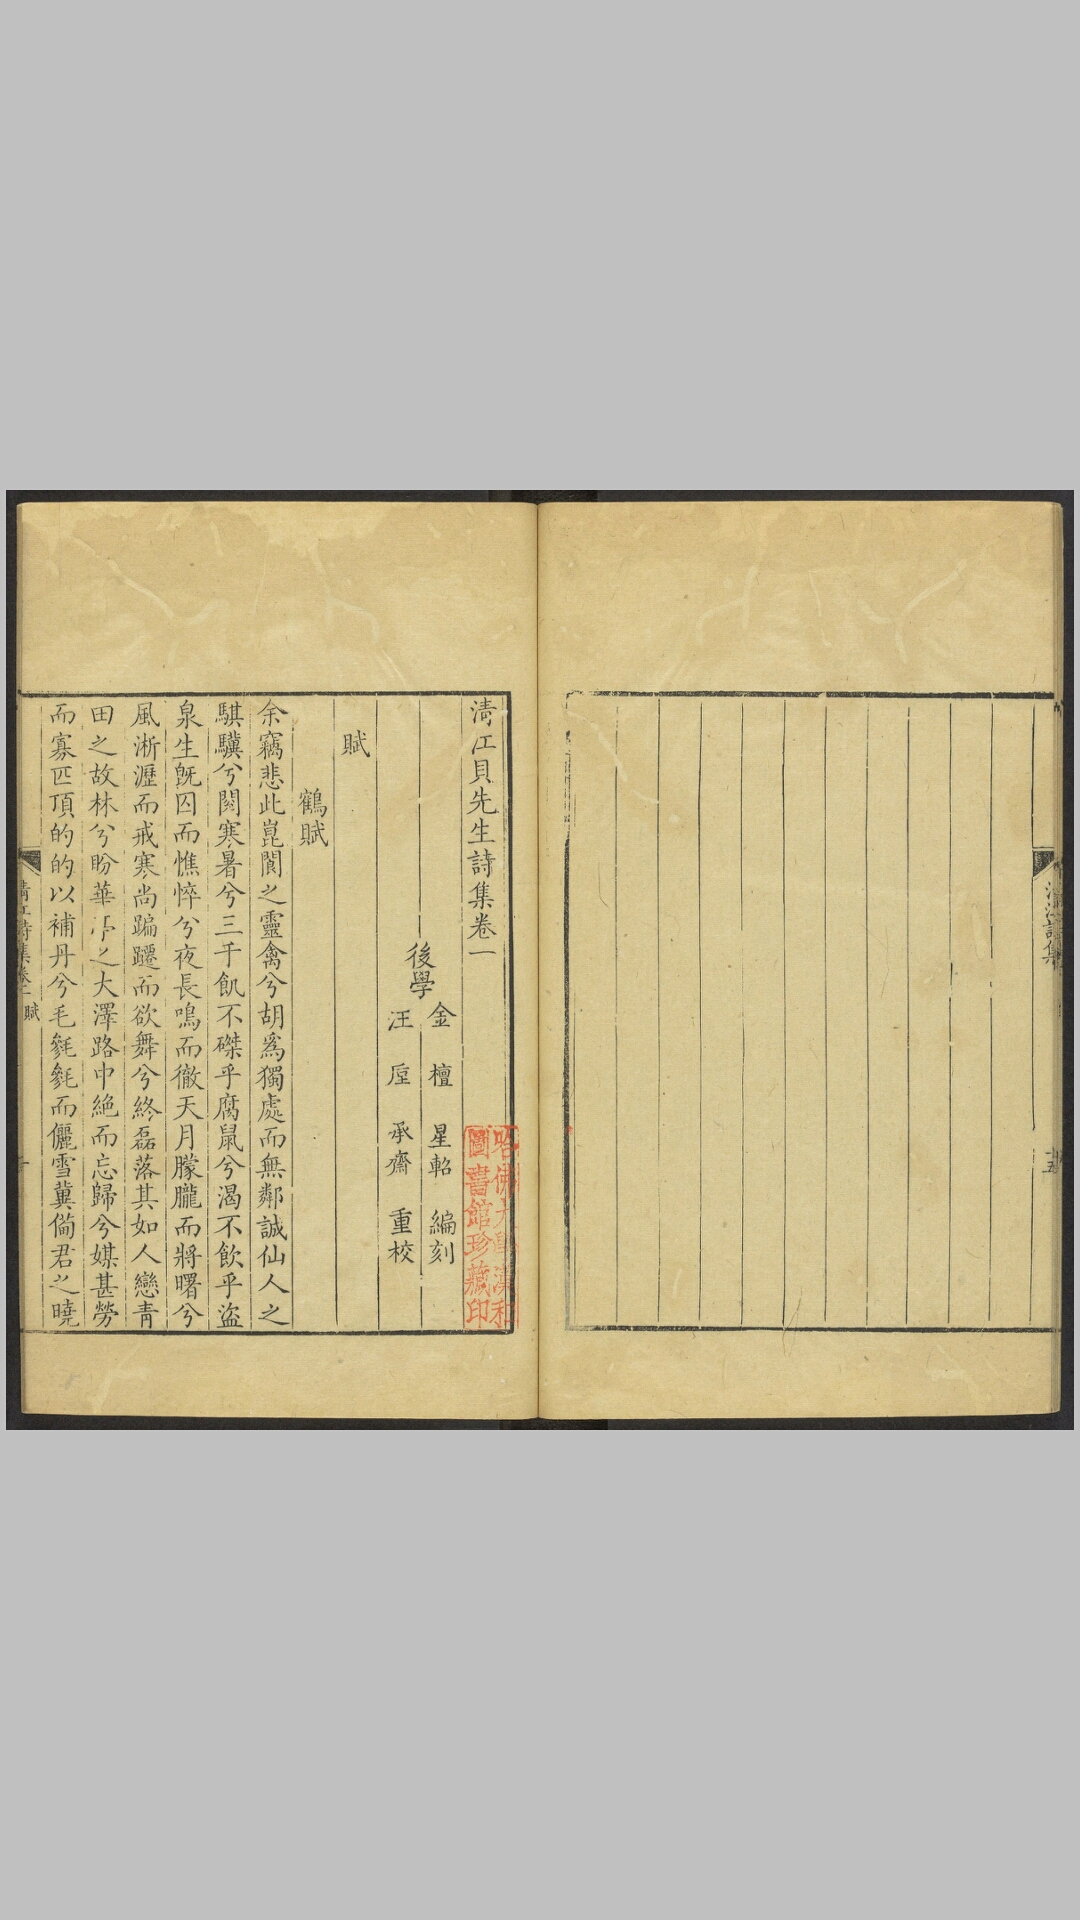 清江詩集
十五
清江貝先生詩集卷一
後學
金檀星軺編刻
汪厔承齋重校
哈佛大學漢和
圖書館珍藏印
賦
鶴賦
余竊悲此崑閬之靈禽兮胡爲獨處而無鄰誠仙人之
騏驥兮閱寒暑兮三千飢不磔乎腐鼠兮渴不飲乎盜
泉生旣囚而憔悴兮夜長鳴而徹天月朦朧而將曙兮
風淅瀝而戒寒尚蹁躚而欲舞兮終磊落其如人戀靑
田之故林兮盼華亭之大澤路中絶而忘歸兮媒甚勞
而寡匹頂的的以補丹兮毛毿毿而儷雪冀偹君之曉
清江詩集卷一
賦
一